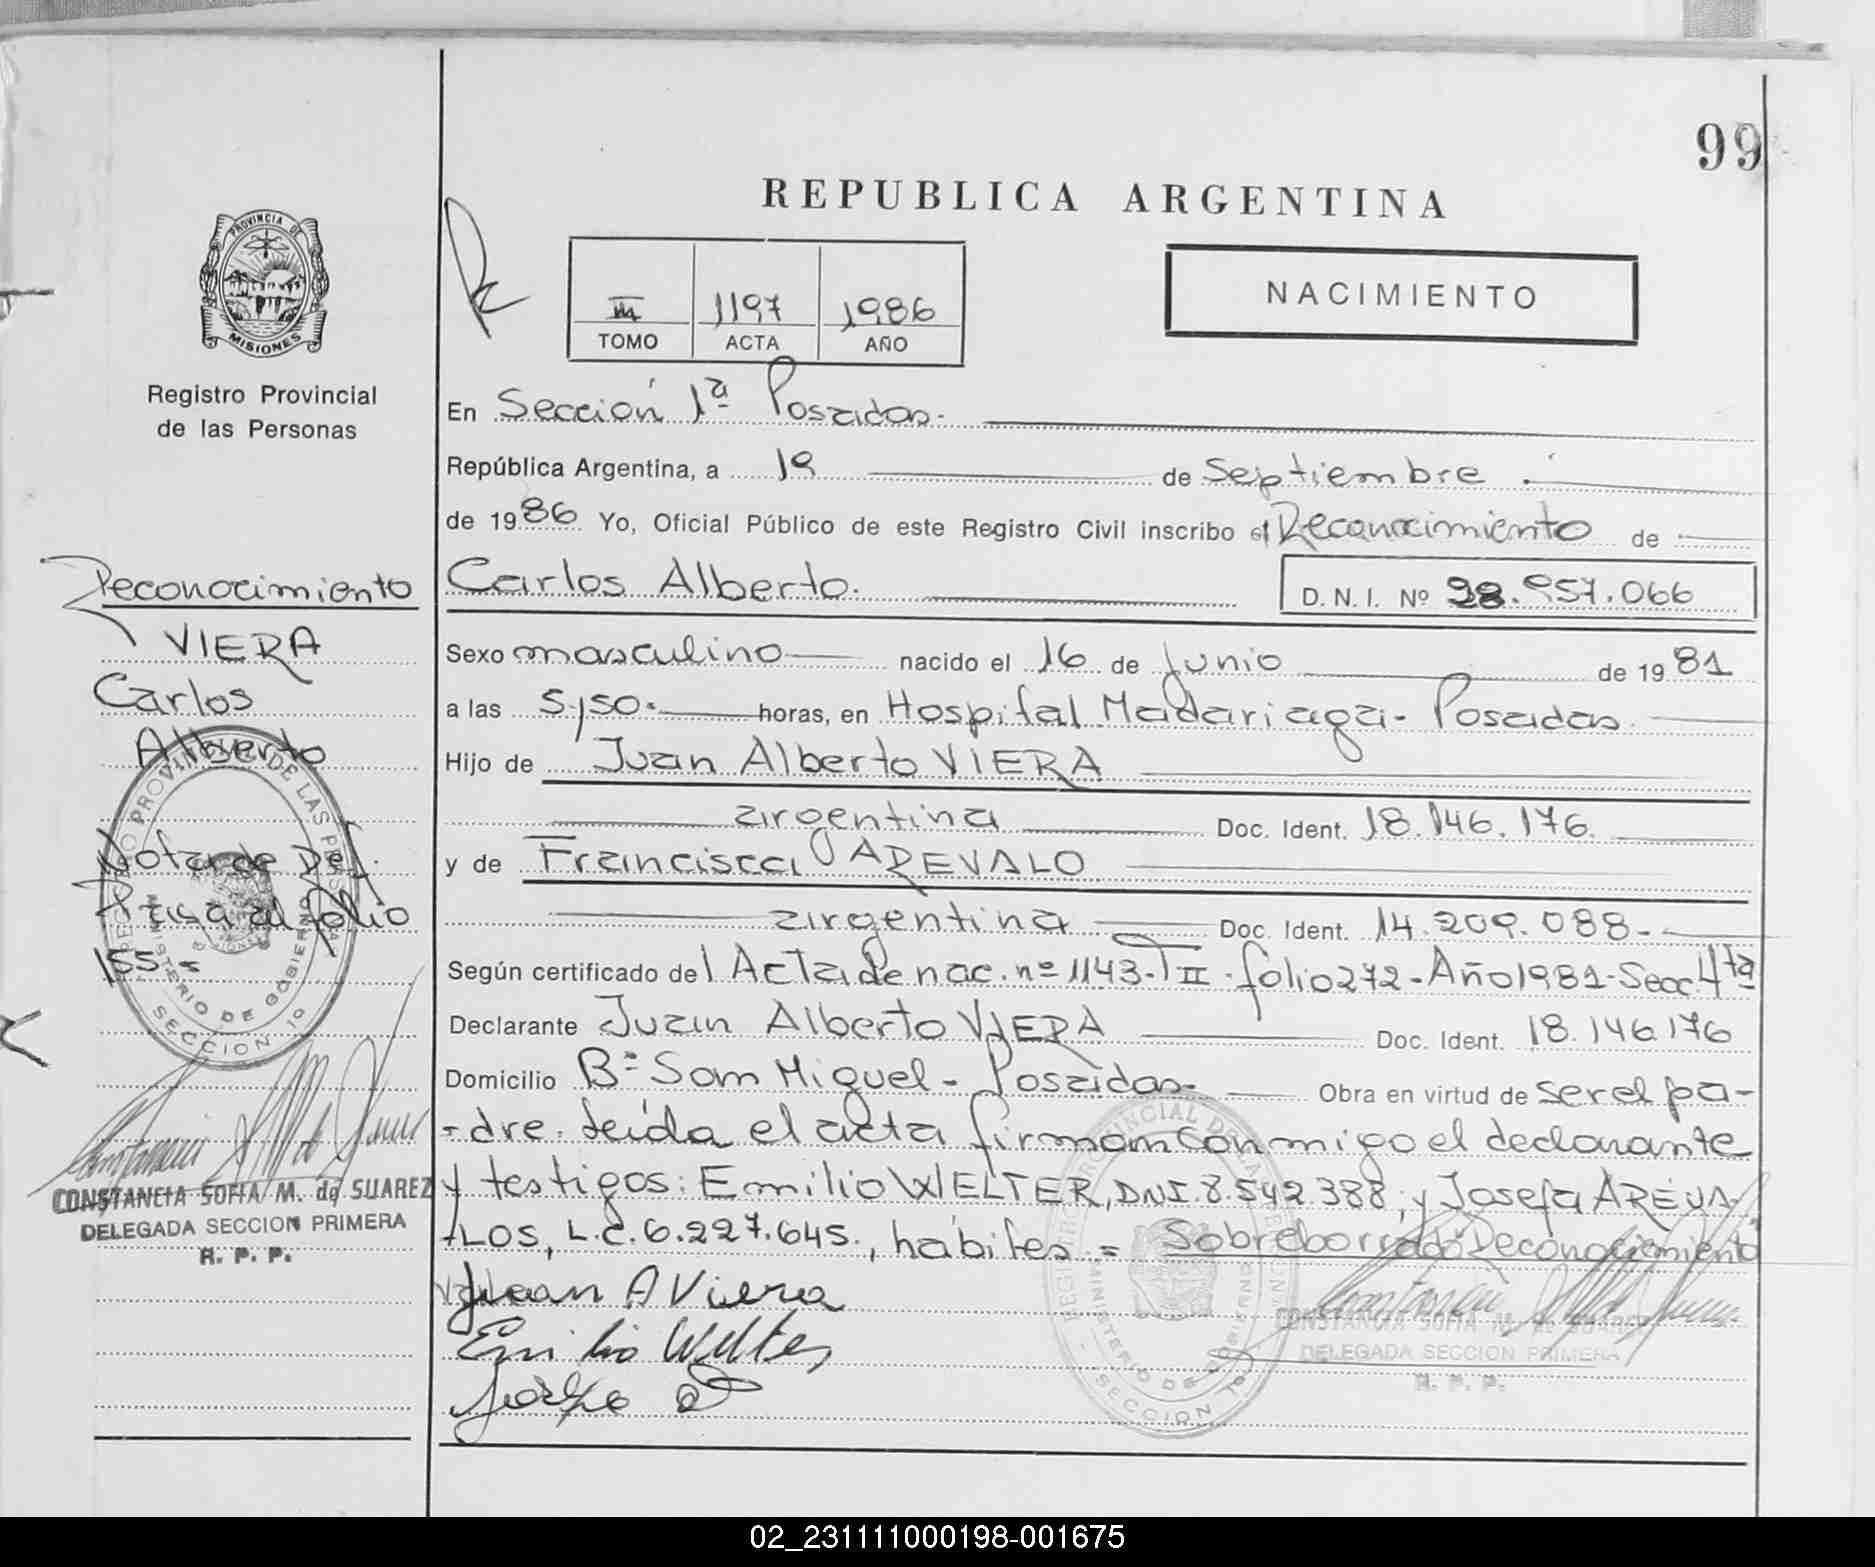 99
REPUBLICA ARGENTINA
PROVINCIA DE
MISIONES
Registro Provincial
de las Personas
III 1197 1986
TOMO ACTA AÑO
NACIMIENTO
En Sección 1ª Posadas.
República Argentina, a 19 de Septiembre
de 1986 Yo, Oficial Público de este Registro Civil inscribo el Reconocimiento de
Carlos Alberto. D. N. I. Nº 28.957.066
Sexo masculino nacido el 16 de Junio de 1981
a las 5,50. horas, en Hospital Madariaga - Posadas.
Hijo de Juan Alberto VIERA
argentina Doc. Ident. 18.146.176.
y de Francisca AREVALO
argentina Doc. Ident. 14.209.088.-
Según certificado del Acta de nac. nº 1143-T II. folio 272-Año 1981-Secc. 4ta
Declarante Juan Alberto VIERA Doc. Ident. 18.146.176
Domicilio Bº San Miguel - Posadas- Obra en virtud de ser el pa-
-dre. Leída el acta firman conmigo el declarante
y testigos: Emilio WELTER, DNI. 8.542.388, y Josefa AREVA-
LOS, L.C. 6.227.645., hábiles = Sobreborrado Reconocimiento
Vale
Juan A Viera
Emilio Welter
Reconocimiento
VIERA
Carlos
Alberto
Nota de Ref.
atisa al folio
155
REGISTRO PROVINCIAL DE LAS PERSONAS
MINISTERIO DE GOBIERNO
SECCION 1º
CONSTANCIA SOFIA M. de SUAREZ
DELEGADA SECCION PRIMERA
R. P. P.
REGISTRO PROVINCIAL DE LAS PERSONAS
MINISTERIO DE GOBIERNO
SECCION 1º
CONSTANCIA SOFIA M. de SUAREZ
DELEGADA SECCION PRIMERA
R. P. P.
02_231111000198-001675